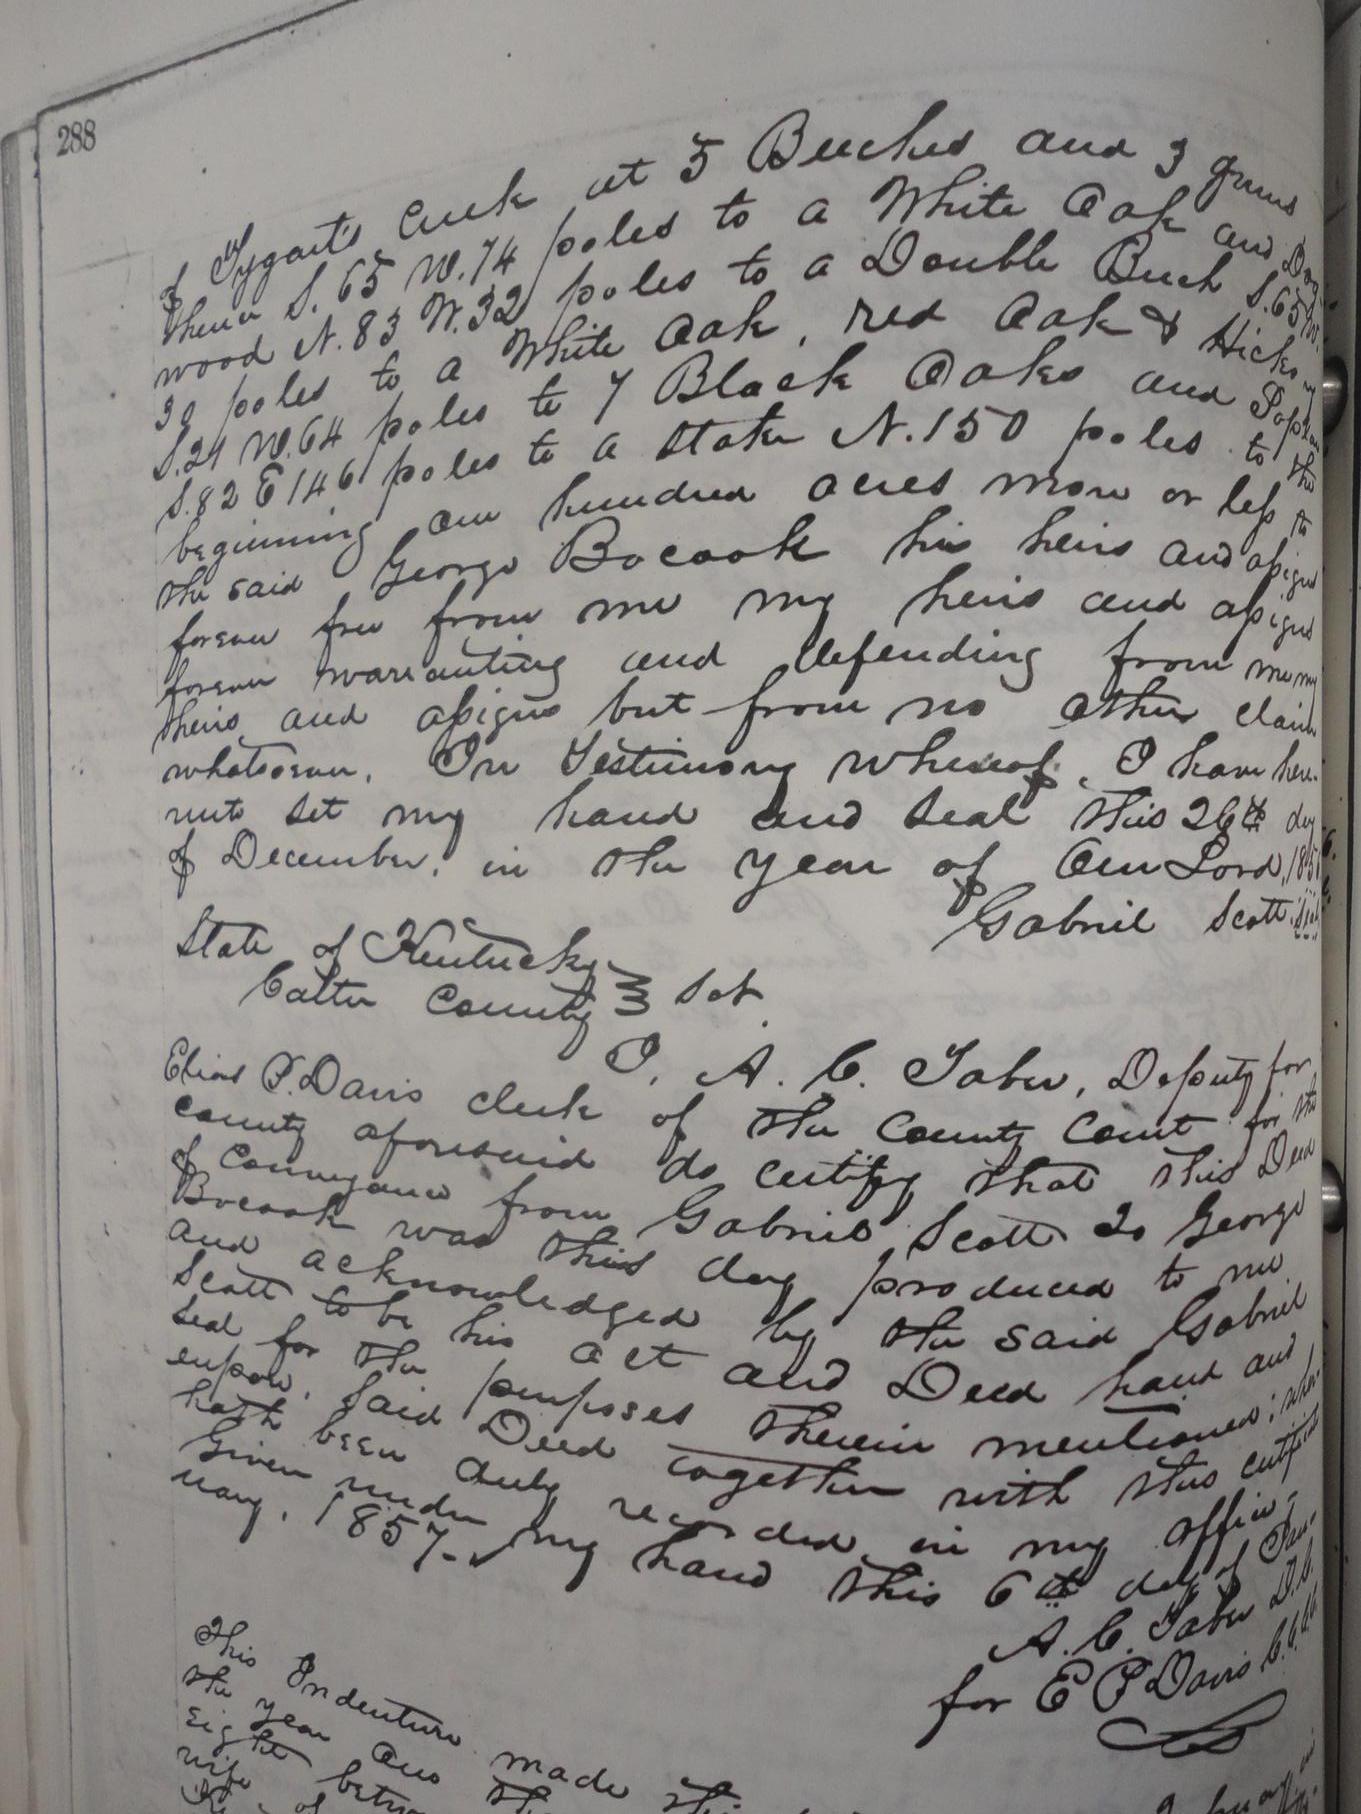 288
of Tygart's Creek at 5 Beeches and 3 gums
thence S. 65 W. 74 poles to a White Oak and Dog
wood N. 83 W. 32 poles to a Double Beech S. 65 W.
30 poles to a White Oak, red Oak & Hickory
S. 21 W. 64 poles to 7 Black Oaks and Poplar
S. 82 E 146 poles to a stake N. 150 poles to the
beginning one hundred acres more or less to
the said George Bocook his heirs and assigns
forever free from me my heirs and assigns
forever warranting and defending from me my
heirs and assigns but from no other claim
whatsoever. In Testimony whereof, I have here-
unto set my hand and seal this 26th day
of December, in the year of Our Lord, 185
Gabriel Scott Seal
State of Kentucky
Carter County } Sct.
I, A. C. Taber, Deputy for
Elias P. Davis clerk of the County Court for the
County aforesaid do certify that this Deed
of Conveyance from Gabriel Scott To George
Bocook was this day produced to me
and acknowledged by the said Gabriel
Scott to be his act and Deed hand and
Seal for the purposes therein mentioned; where-
upon, Said Deed together with this certificate
hath been duly recorded in my office.
Given under my hand this 6th day of Jan-
uary, 1857.
A. C. Taber D.C.
for E P Davis C.C.C.C.
This Indenture made this
the year One Thou
eight between
wife of